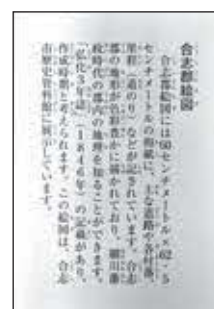 合志郡絵図
合志郡絵図には60センチメートル×62.5
センチメートルの和紙に、主な道路や各村落、
里程（道のり）などが記されています。合志
郡の地形が色彩豊かに描かれており、細川藩
政時代の郡内の地理を知ることができます。
「弘化3年誌」（1846年）の記載があり、
作成時期と考えられます。この絵図は、合志
市歴史資料館に展示しています。